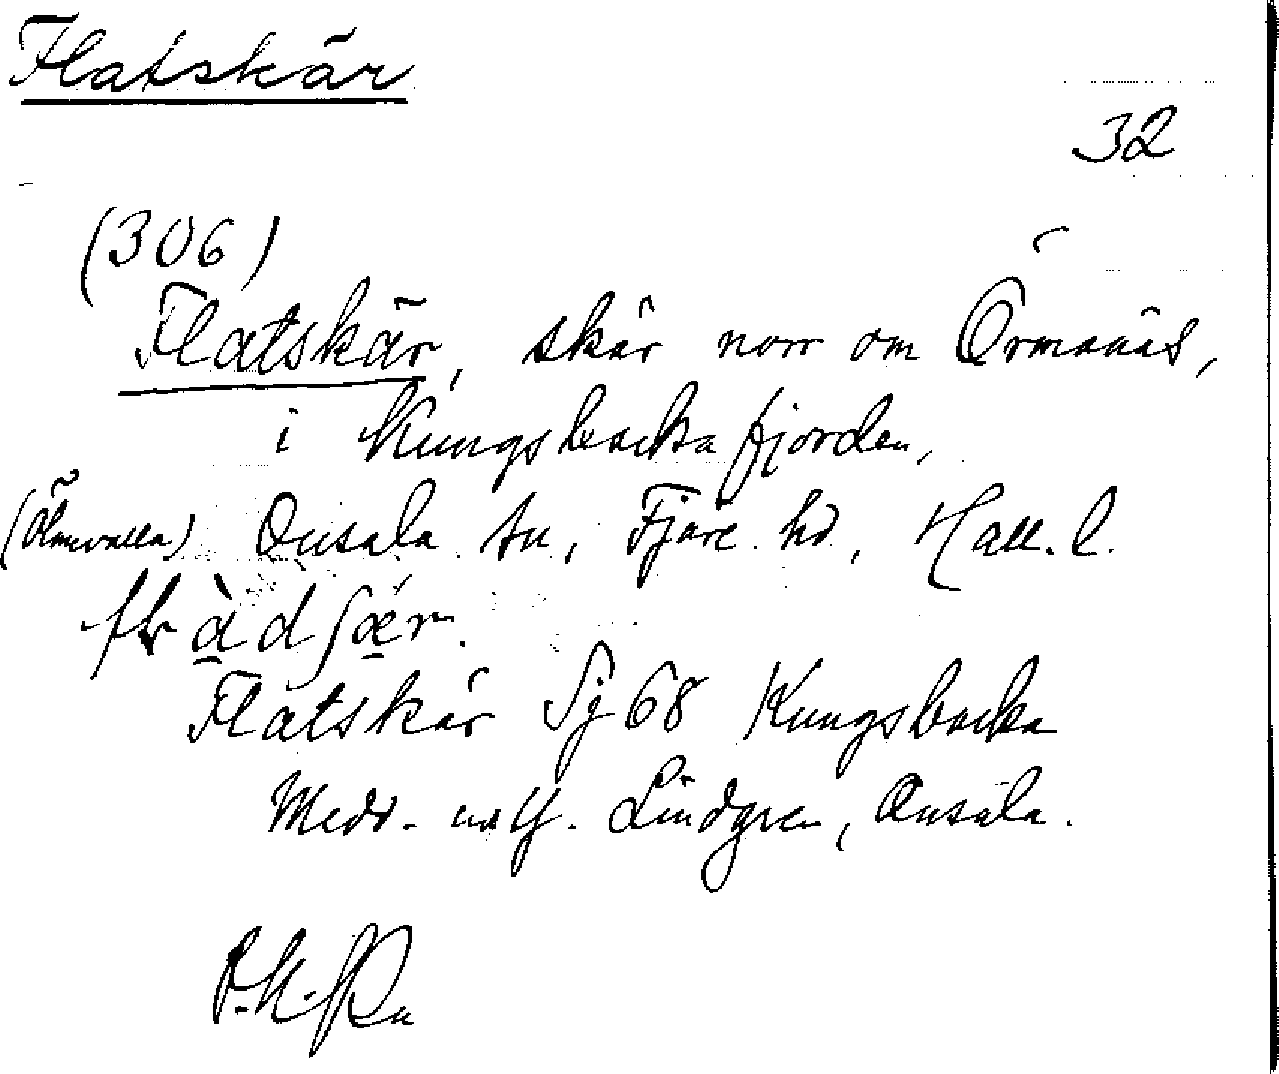 Flatskär
32
(306)
Flatskär, skär norr om Örmanäs,
i Kungsbackafjorden,
(Ölmevalla) Onsala sn, Fjäre hd, Hall. l.
Flatskär Sj 68 Kungsbacka
Medd. Lindgren, Onsala.